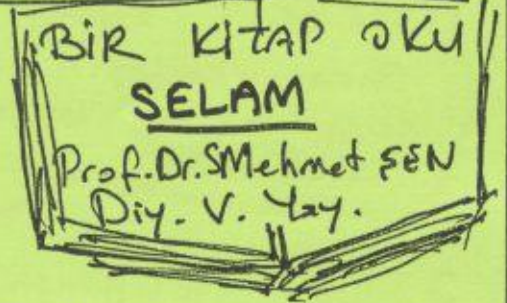 BİR KİTAP OKU
SELAM
Prof.Dr.SMehmet ŞEN
Diy. V. Yay.